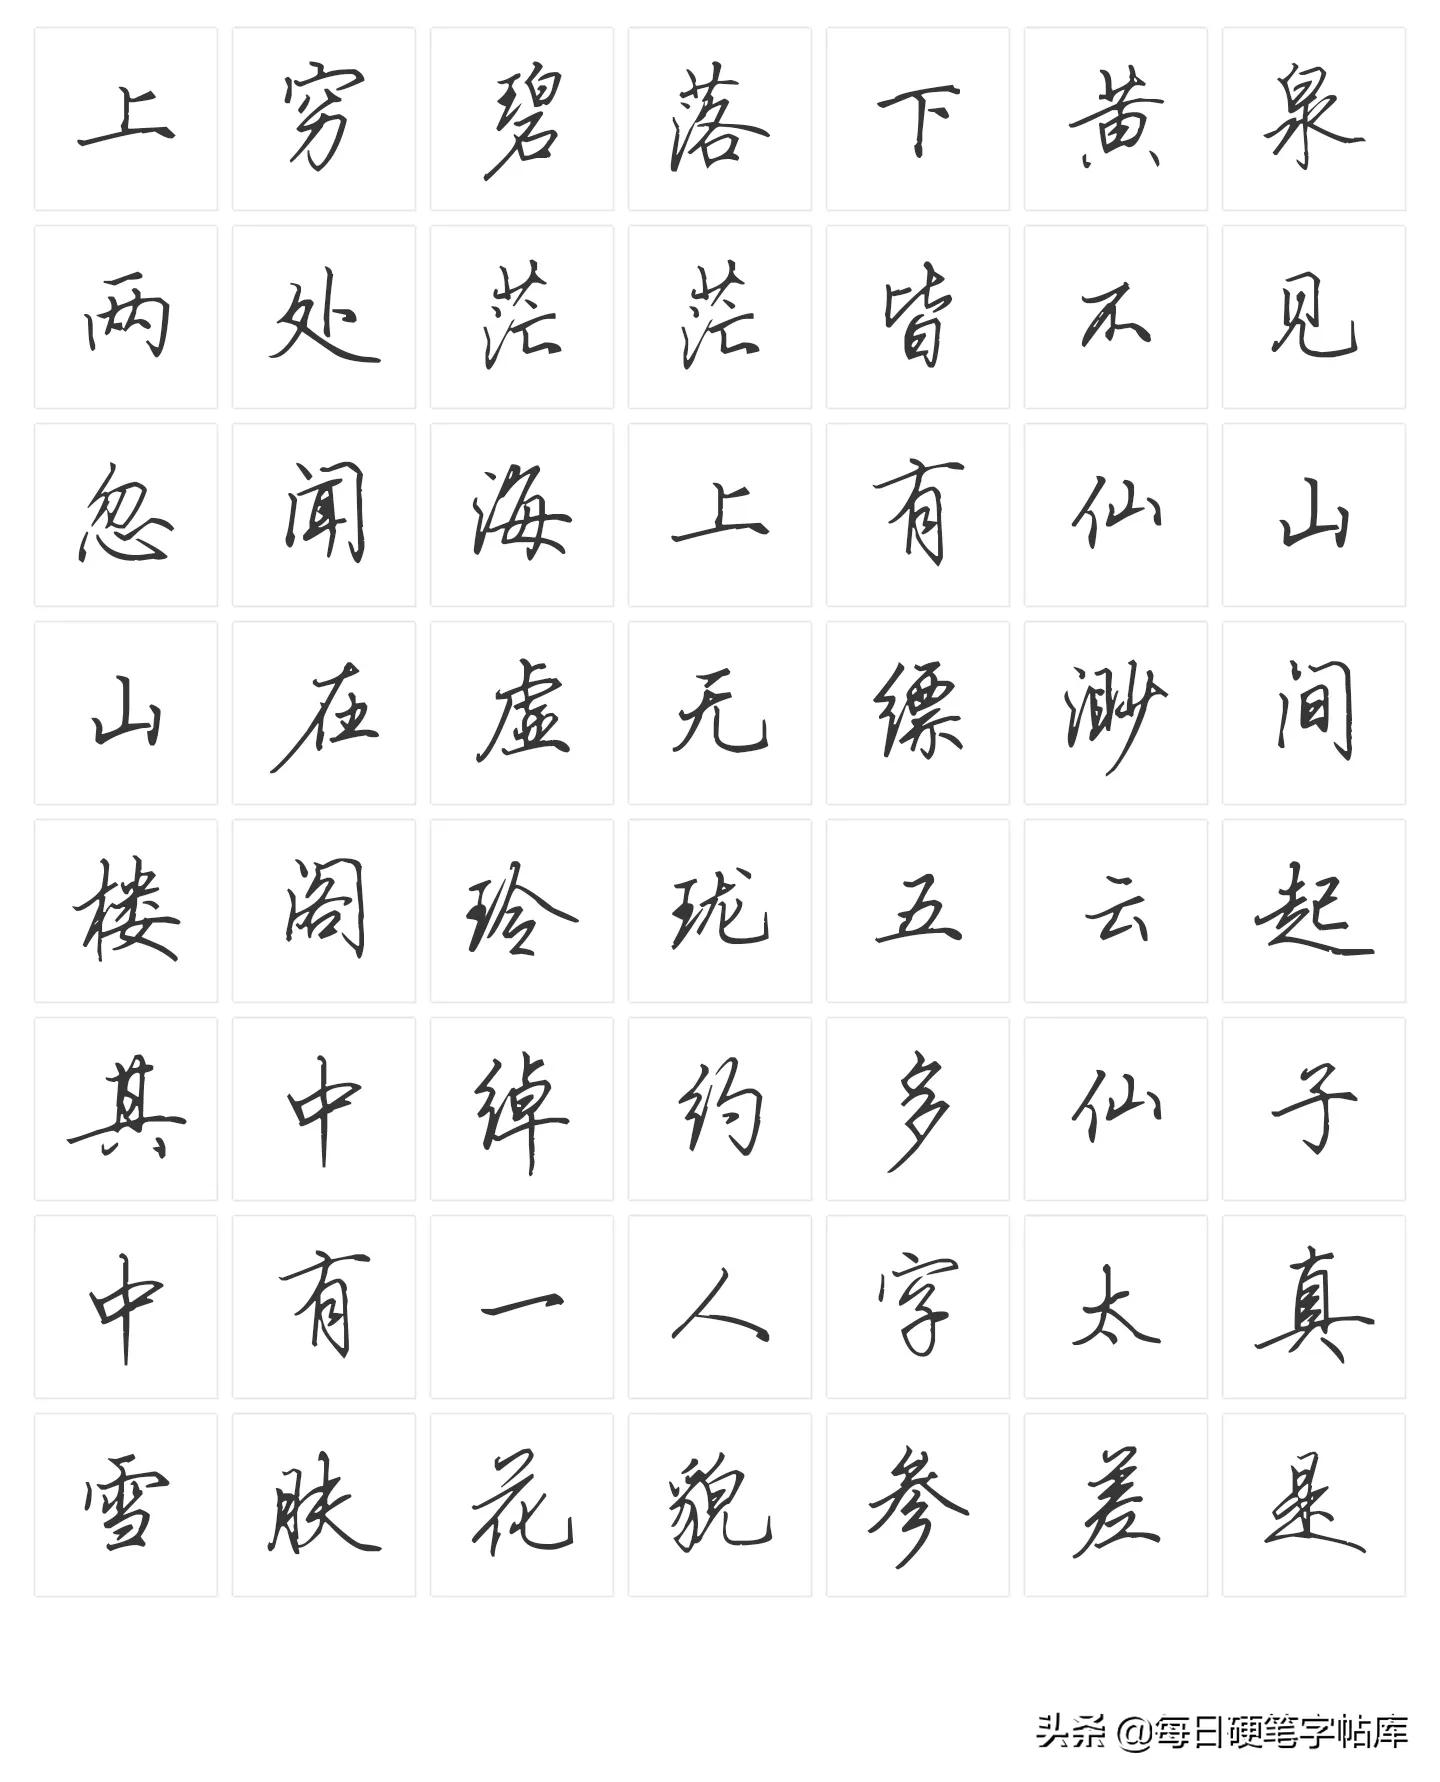 上穷碧落下黄泉
两处茫茫皆不见
忽闻海上有仙山
山在虚无缥渺间
楼阁玲珑五云起
其中绰约多仙子
中有一人字太真
雪肤花貌参差是
头条 @每日硬笔字帖库